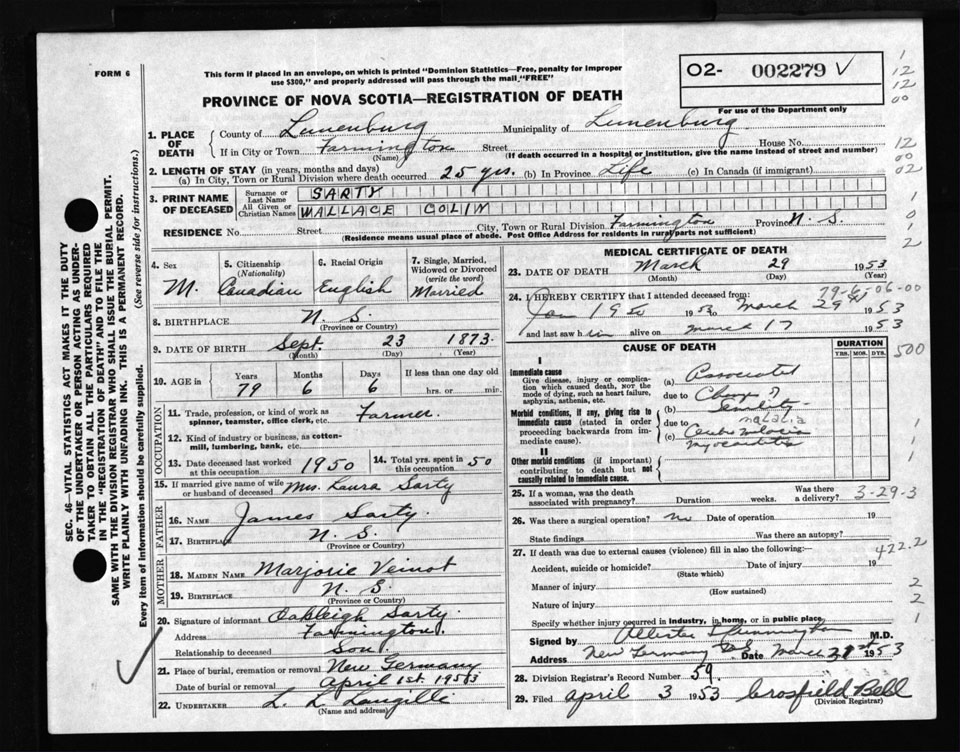 FORM 6
This form if placed in an envelope, on which is printed "Dominion Statistics—Free, penalty for improper
use $300," and properly addressed will pass through the mail "FREE"
PROVINCE OF NOVA SCOTIA—REGISTRATION OF DEATH
O2- 002279 V
For use of the Department only
1
12
12
00
12
00
02
1
0
1
2
SEC. 46—VITAL STATISTICS ACT MAKES IT THE DUTY
OF THE UNDERTAKER OR PERSON ACTING AS UNDER-
TAKER TO OBTAIN ALL THE PARTICULARS REQUIRED
IN THE "REGISTRATION OF DEATH" AND TO FILE THE
SAME WITH THE DIVISION REGISTRAR WHO SHALL ISSUE THE BURIAL PERMIT.
WRITE PLAINLY WITH UNFADING INK. THIS IS A PERMANENT RECORD.
Every item of information should be carefully supplied. (See reverse side for instructions.)
1. PLACE OF DEATH
County of Lunenburg Municipality of Lunenburg
If in City or Town Farmington Street House No.
(Name) (If death occurred in a hospital or institution, give the name instead of street and number)
2. LENGTH OF STAY (in years, months and days)
(a) In City, Town or Rural Division where death occurred 25 yrs. (b) In Province Life (c) In Canada (if immigrant)
3. PRINT NAME OF DECEASED
Surname or Last Name SARTY
All Given or Christian Names WALLACE COLIN
RESIDENCE No. Street City, Town or Rural Division Farmington Province N. S.
(Residence means usual place of abode. Post Office Address for residents in rural parts not sufficient)
4. Sex M.
5. Citizenship (Nationality) Canadian
6. Racial Origin English
7. Single, Married, Widowed or Divorced (write the word) Married
8. BIRTHPLACE N. S.
(Province or Country)
9. DATE OF BIRTH Sept. 23 1873
(Month) (Day) (Year)
10. AGE in Years Months Days If less than one day old
79 6 6 hrs. or min.
OCCUPATION
11. Trade, profession, or kind of work as
spinner, teamster, office clerk, etc. Farmer.
12. Kind of industry or business, as cotton-
mill, lumbering, bank, etc.
13. Date deceased last worked at this occupation 1950
14. Total yrs. spent in this occupation 50
15. If married give name of wife
or husband of deceased Mrs. Laura Sarty
FATHER
16. NAME James Sarty.
17. BIRTHPLACE N. S.
(Province or Country)
MOTHER
18. MAIDEN NAME Marjorie Veinot
19. BIRTHPLACE N. S.
(Province or Country)
20. Signature of informant Oakleigh Sarty.
Address Farmington.
Relationship to deceased Son.
21. Place of burial, cremation or removal New Germany
Date of burial or removal April 1st. 1953
22. UNDERTAKER L. L. Langille
(Name and address)
MEDICAL CERTIFICATE OF DEATH
23. DATE OF DEATH March 29 1953
(Month) (Day)
79-6-06-00
24. I HEREBY CERTIFY that I attended deceased from:
Jan 1950 March 29 1953
and last saw him alive on March 17 1953
CAUSE OF DEATH
DURATION
YRS. MOS. DYS.
500
I
Immediate cause
Give disease, injury or complica-
tion which caused death, NOT the
mode of dying, such as heart failure,
asphyxia, asthenia, etc.
(a)
due to
(b) Senility
Morbid conditions, if any, giving rise to
immediate cause (stated in order
proceeding backwards from im-
mediate cause).
due to
(c)
myocarditis
1
1
II
Other morbid conditions (if important)
contributing to death but not
causally related to immediate cause.
25. If a woman, was the death
associated with pregnancy? Duration weeks. Was there a delivery?
3-29-3
26. Was there a surgical operation? no Date of operation 19
State findings Was there an autopsy?
27. If death was due to external causes (violence) fill in also the following:—
422.2
Accident, suicide or homicide? Date of injury 19
(State which)
Manner of injury 2
(How sustained)
Nature of injury 2
Specify whether injury occurred in industry, in home, or in public place 1
Signed by M.D.
Address New Germany N.S. Date March 31st 1953
28. Division Registrar's Record Number 59.
29. Filed April 3 1953 Crosfield Bell
(Division Registrar)